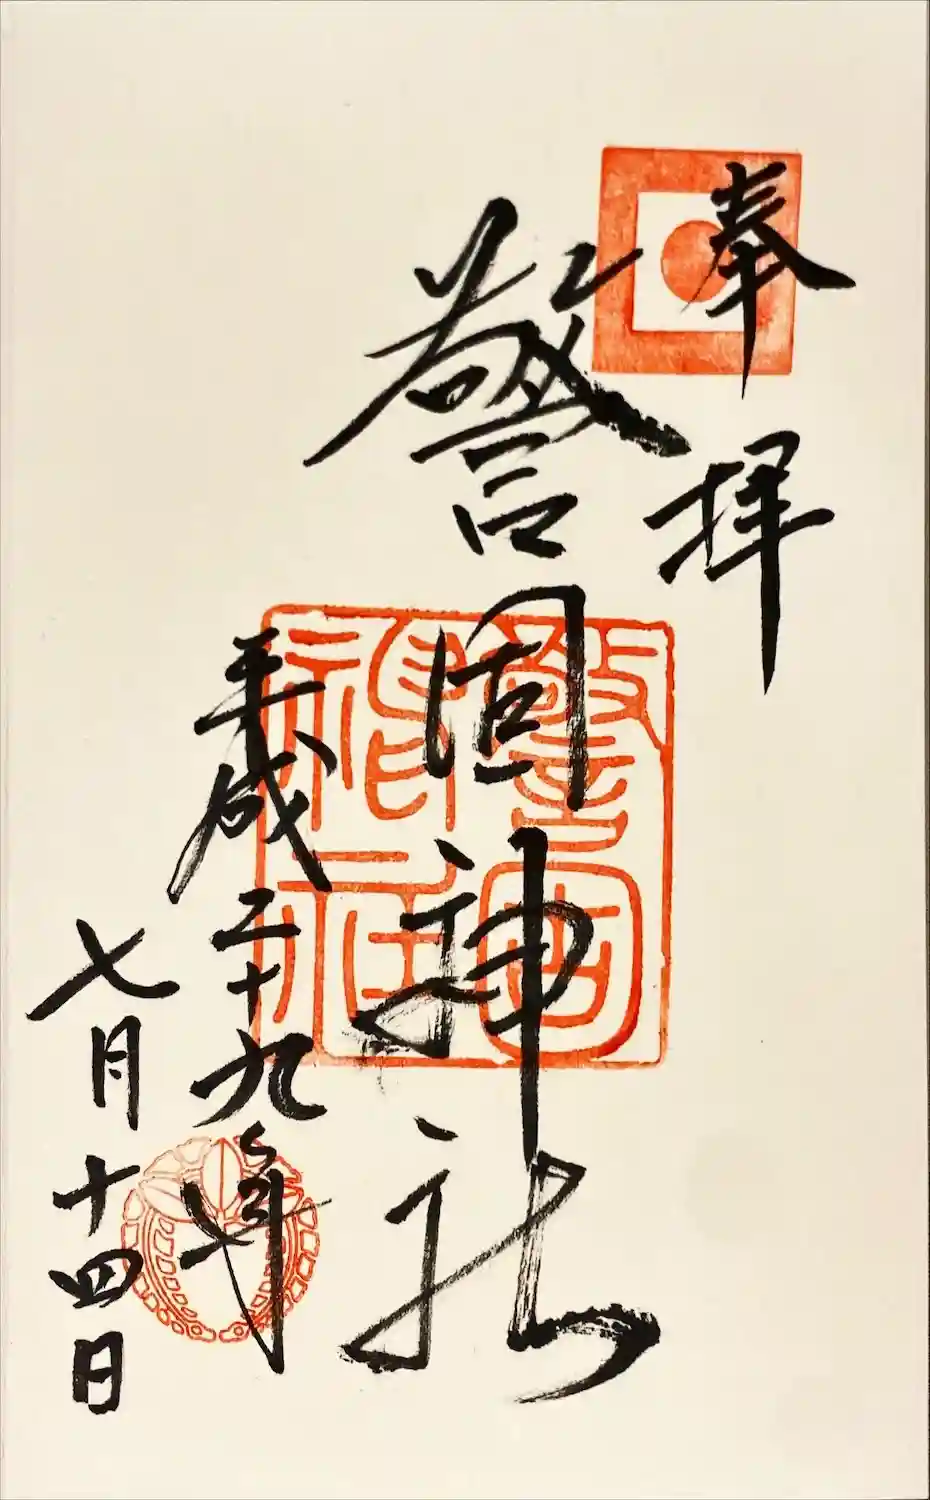 奉拝
警固神社
平成二十九年
七月十四日
警固神社